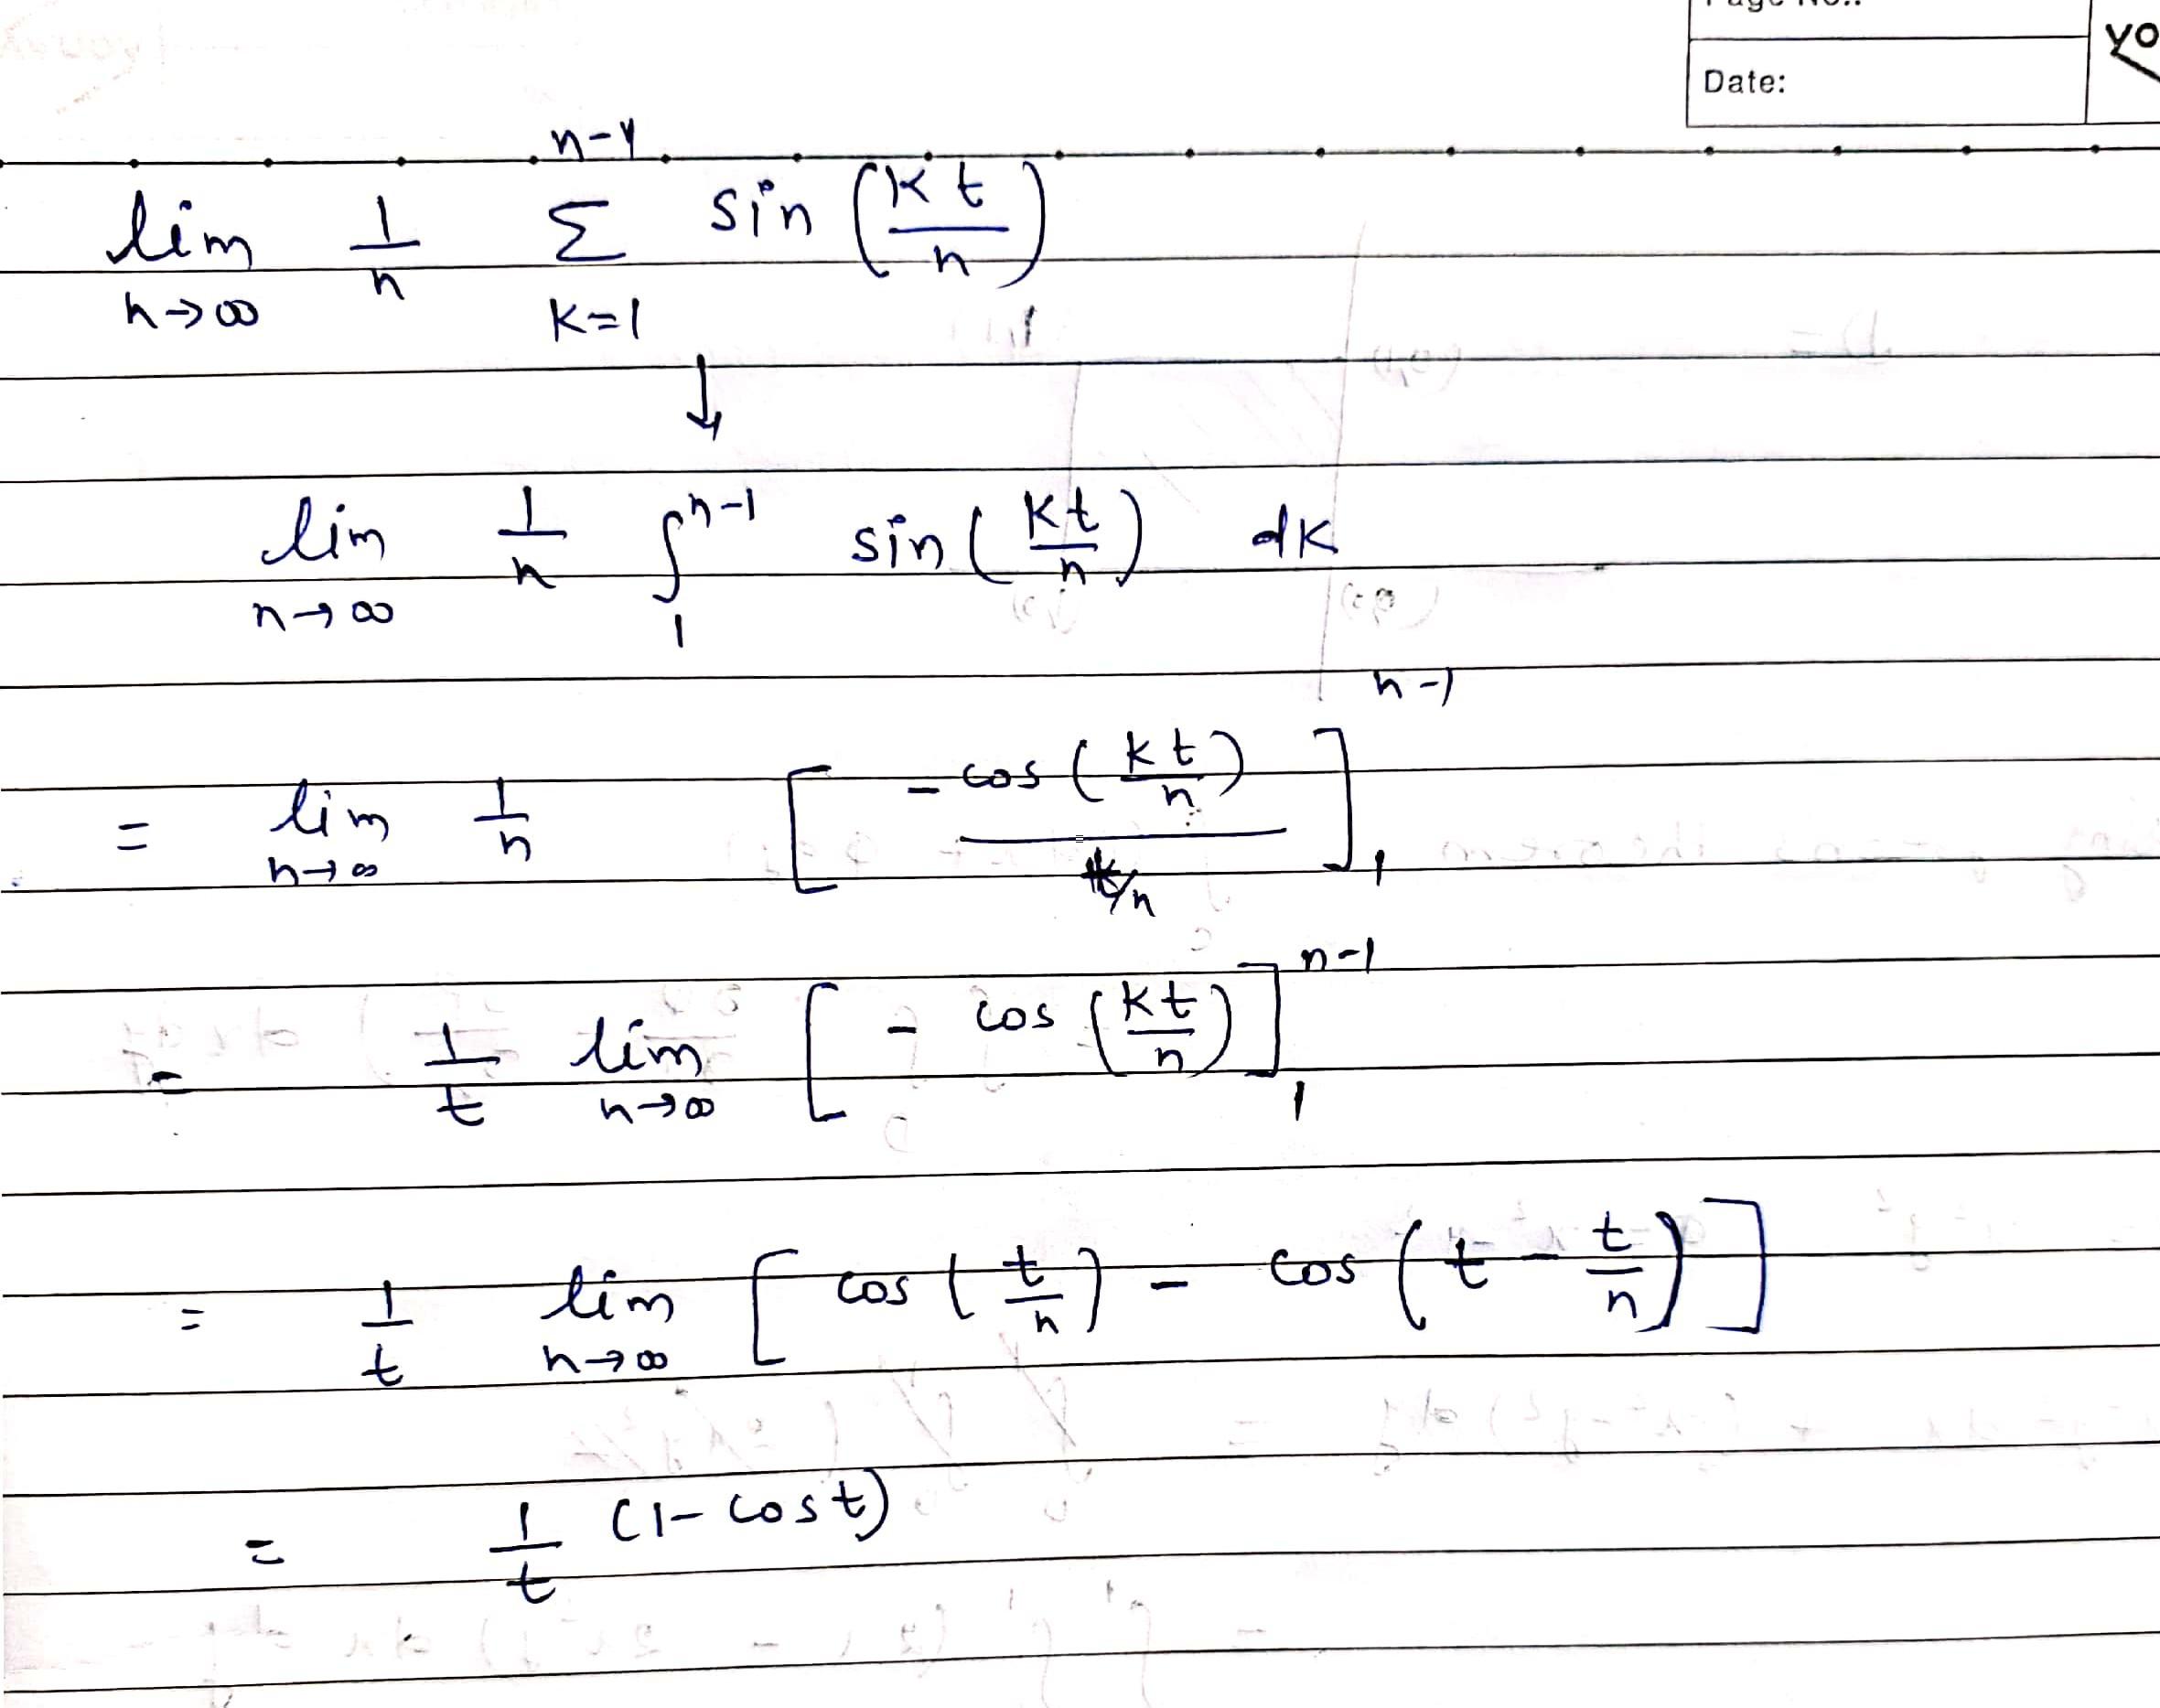 Page No.:
Date:
yo
lim 1/n n-1 Σ k=1 sin (kt/n)
n→∞
↓
lim n→∞ 1/n ∫ 1 n-1 sin (kt/n) dk
= lim n→∞ 1/n [ - cos (kt/n) / t/n ] 1 n-1
= 1/t lim n→∞ [ - cos (kt/n) ] 1 n-1
= 1/t lim n→∞ [ cos (t/n) - cos (t - t/n) ]
= 1/t (1 - cos t)